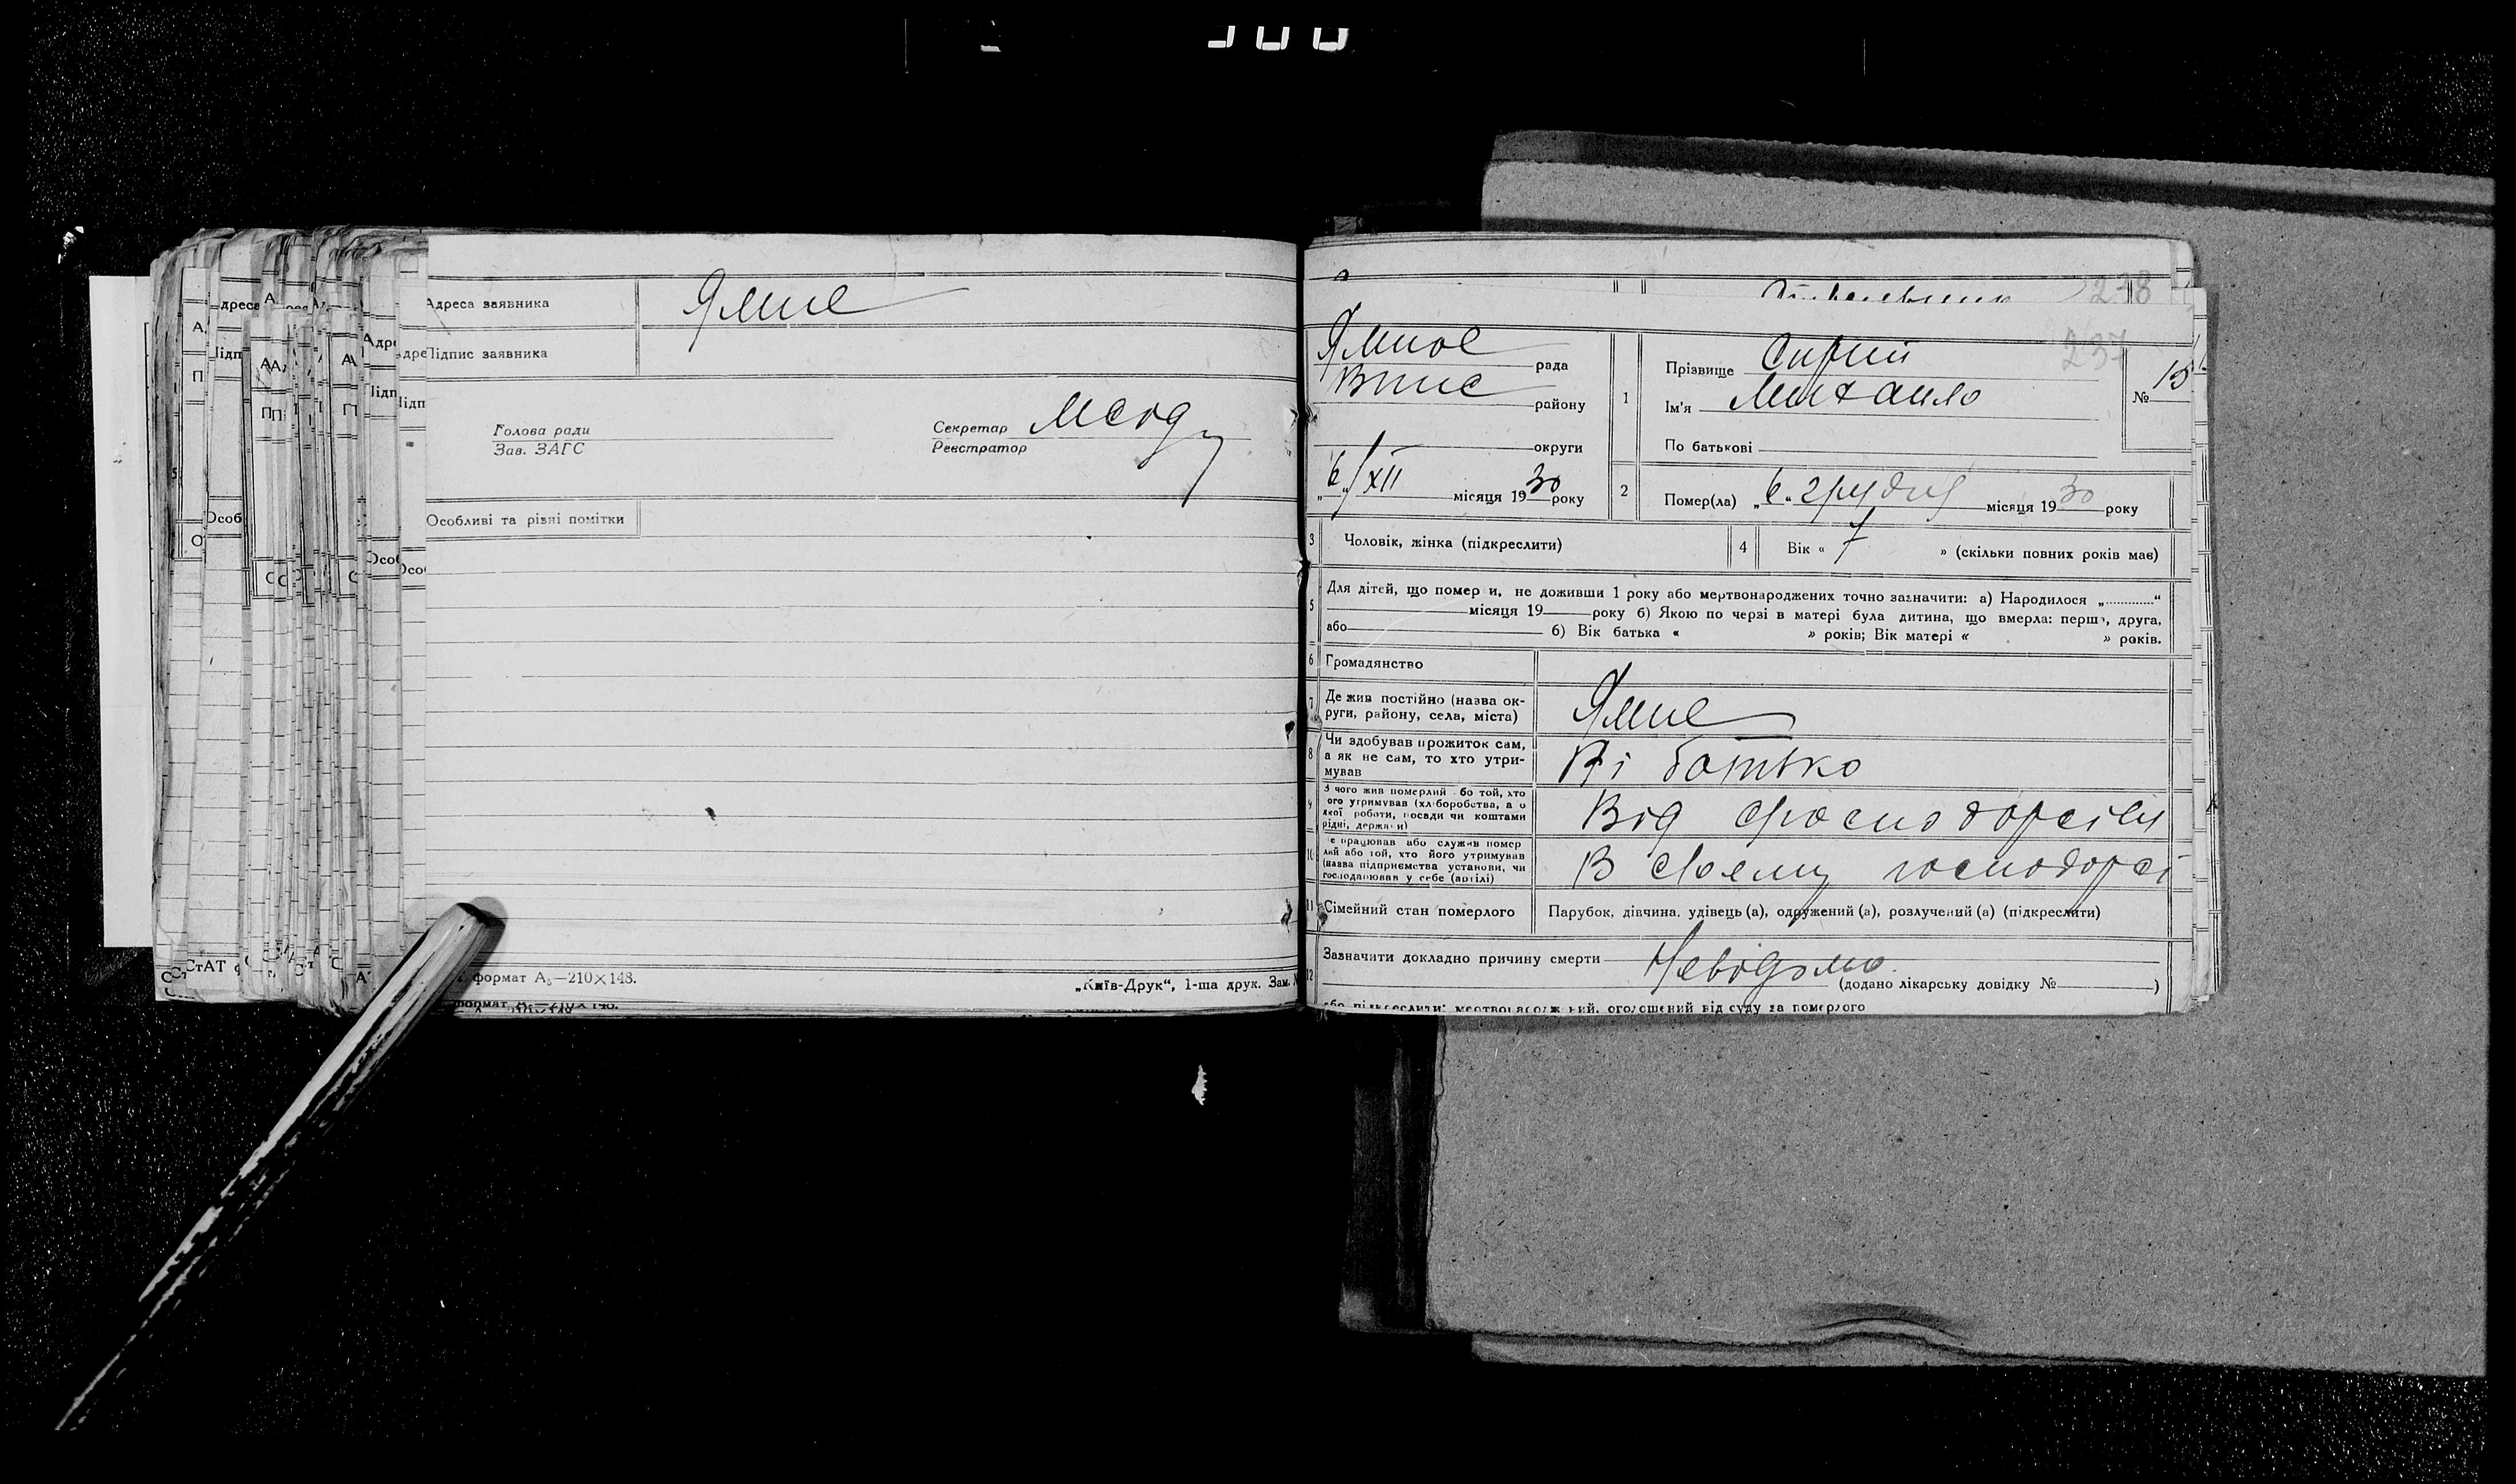 Адреса заявника Ямне
Підпис заявника
Голова ради
Зав. ЗАГС
Секретар
Реєстратор
Особливі та різні помітки
формат А₅—210×148.
„Київ-Друк“, 1-ша друк. Зам.
278
237
рада
району
округи
„6„/XII місяця 1930 року
1
Прізвище Сирий
Ім'я Михаило
По батькові
№ 15
2
Помер(ла) „6„ грудня місяця 1930 року
3 Чоловік, жінка (підкреслити)
4 Вік « 7 » (скільки повних років має)
5 Для дітей, що помер и, не доживши 1 року або мертвонароджених точно зазначити: а) Народилося „............“
місяця 19 року б) Якою по черзі в матері була дитина, що вмерла: перша, друга,
або б) Вік батька « » років; Вік матері « » років.
6 Громадянство
7 Де жив постійно (назва ок-
руги, району, села, міста)
Ямне
8 Чи здобував прожиток сам,
а як не сам, то хто утри-
мував
Ні батько
9 З чого жив померлий бо той, хто
ого утримував (хліборобства, а о
якої роботи, посади чи коштами
рідні, держави)
Від
10 е працював або служив помер
лий або той, хто його утримував
(назва підприємства установи, чи
господарював у себе (артілі)
В своему господарсі
11 Сімейний стан померлого
Парубок, дівчина, удівець (а), одружений (а), розлучений (а) (підкреслити)
12 Зазначити докладно причину смерти Невідомо.
(додано лікарську довідку № )
або підкреслити: мертвонароджений, оголошений від суду за померлого